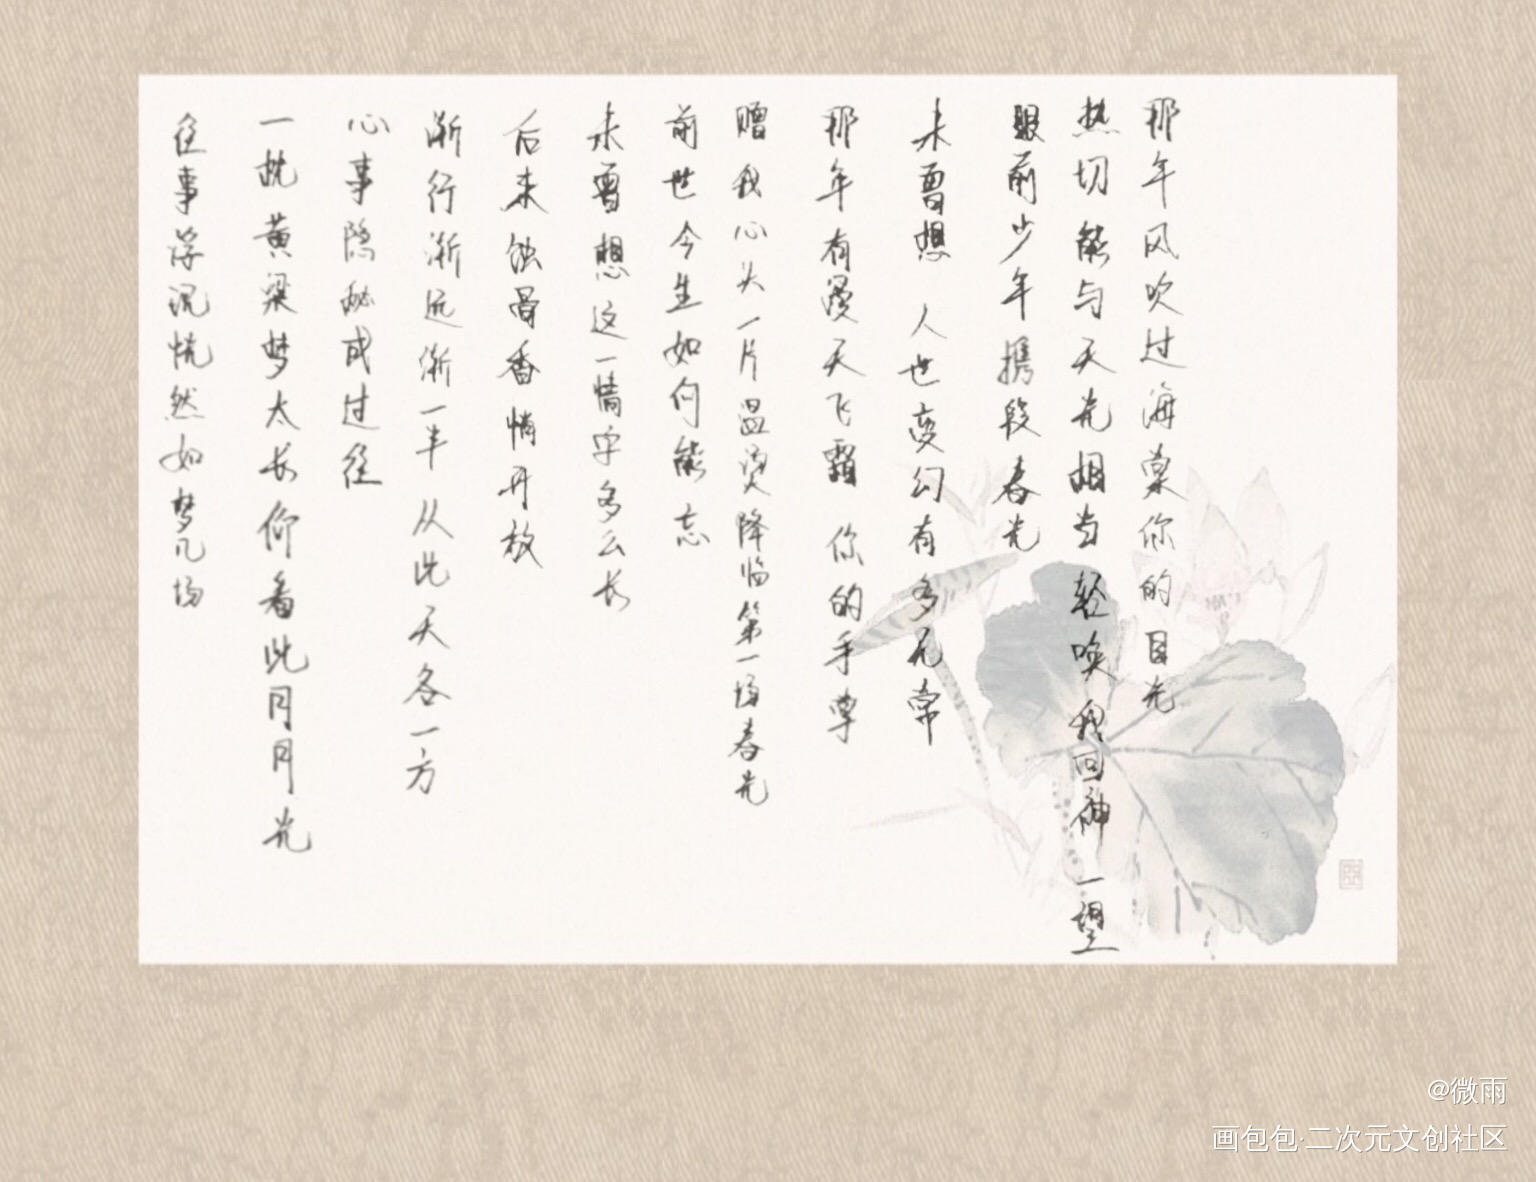 那年风吹过海棠你的目光
热切能与天光相当 轻唤我回神一望
眼前少年携段春光
未曾想 人世变幻有多无常
那年有漫天飞霜 你的手掌
赠我心头一片温烫降临第一场春光
前世今生如何能忘
未曾想这一情字多么长
后来蚀骨香悄开放
渐行渐远渐一半 从此天各一方
心事隐秘成过往
一枕黄粱梦太长 你看此月月光
往事浮沉恍然如梦几场
@微雨
画包包·二次元文创社区